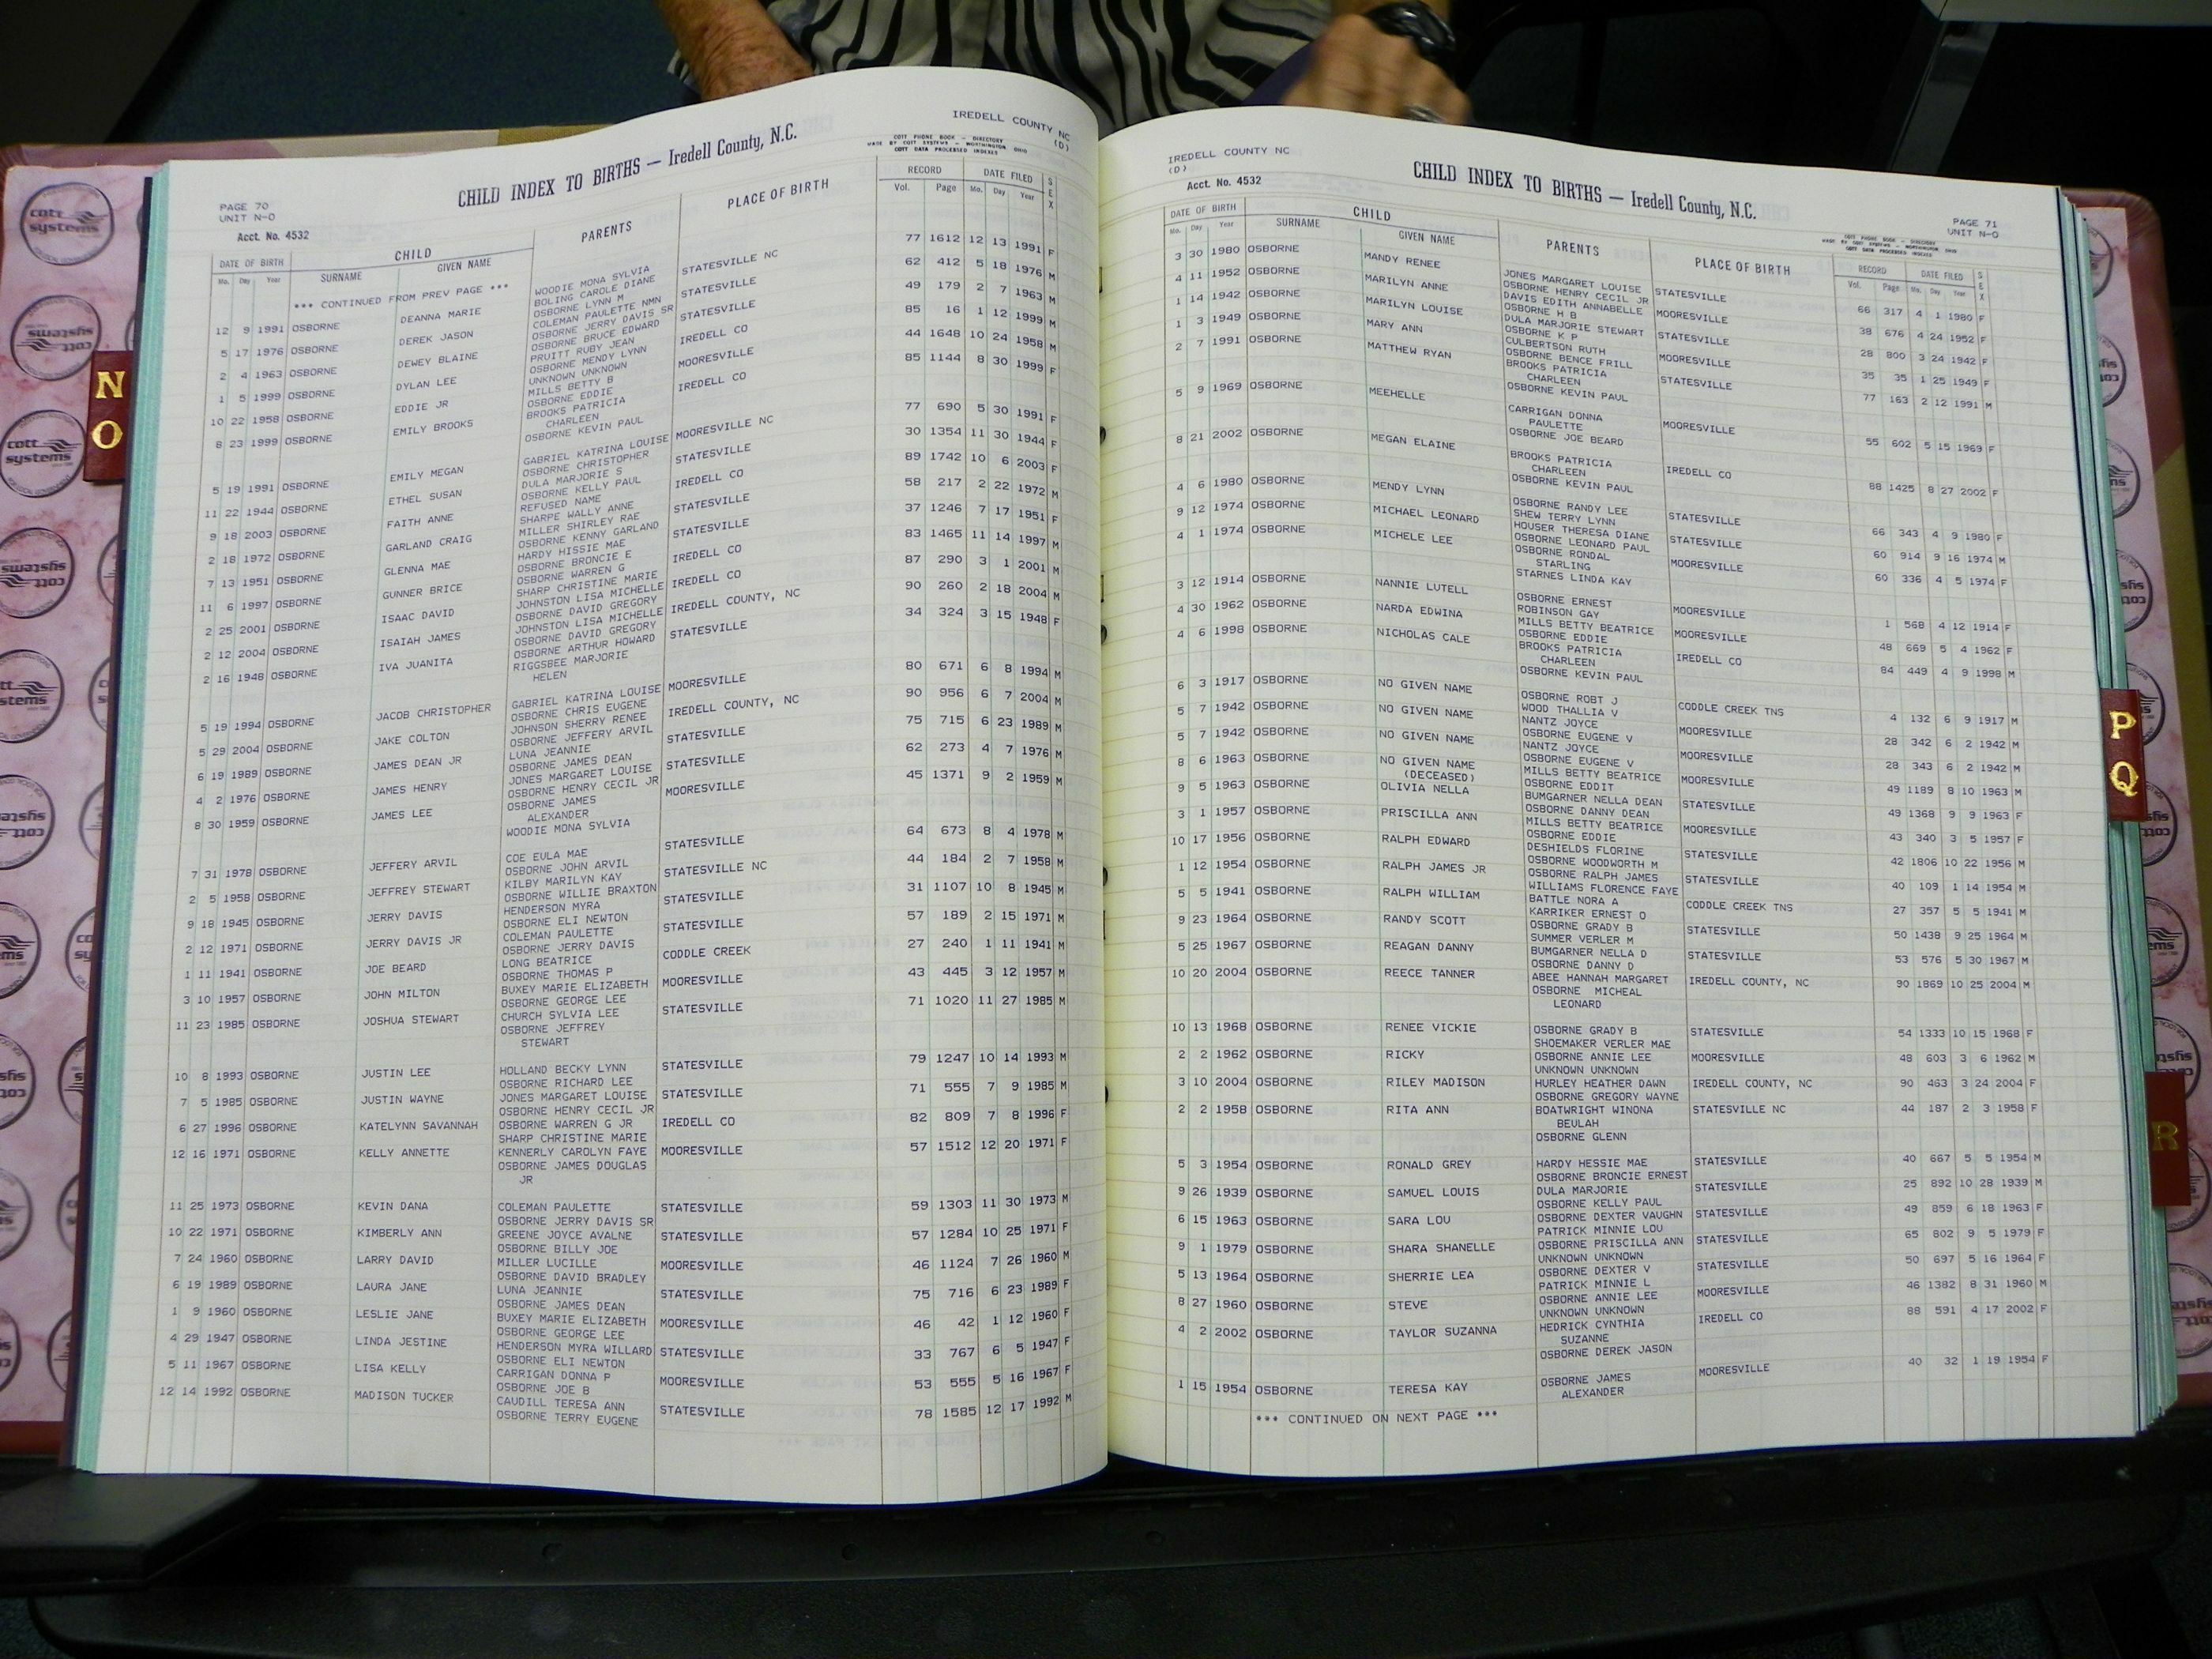 IREDELL COUNTY NC
(D)
COTT PHONE BOOK — DIRECTORY
MADE BY COTT SYSTEMS — WORTHINGTON OHIO
COTT DATA PROCESSED INDEXES
CHILD INDEX TO BIRTHS — Iredell County, N.C.
PAGE 70
UNIT N-O
Acct. No. 4532
DATE OF BIRTH CHILD PARENTS PLACE OF BIRTH RECORD DATE FILED SEX
Mo. Day Year SURNAME GIVEN NAME Vol. Page Mo. Day Year
*** CONTINUED FROM PREV PAGE *** WOODIE MONA SYLVIA
12 9 1991 OSBORNE DEANNA MARIE BOLING CAROLE DIANE STATESVILLE NC 77 1612 12 13 1991 F
OSBORNE LYNN M
5 17 1976 OSBORNE DEREK JASON COLEMAN PAULETTE NMN STATESVILLE 62 412 5 18 1976 M
OSBORNE JERRY DAVIS SR
2 4 1963 OSBORNE DEWEY BLAINE OSBORNE BRUCE EDWARD STATESVILLE 49 179 2 7 1963 M
PRUITT RUBY JEAN
1 5 1999 OSBORNE DYLAN LEE OSBORNE MENDY LYNN IREDELL CO 85 16 1 12 1999 M
UNKNOWN UNKNOWN
10 22 1958 OSBORNE EDDIE JR MILLS BETTY B MOORESVILLE 44 1648 10 24 1958 M
OSBORNE EDDIE
8 23 1999 OSBORNE EMILY BROOKS BROOKS PATRICIA IREDELL CO 85 1144 8 30 1999 F
CHARLEEN
OSBORNE KEVIN PAUL
5 19 1991 OSBORNE EMILY MEGAN GABRIEL KATRINA LOUISE MOORESVILLE NC 77 690 5 30 1991 F
OSBORNE CHRISTOPHER
11 22 1944 OSBORNE ETHEL SUSAN DULA MARJORIE S STATESVILLE 30 1354 11 30 1944 F
OSBORNE KELLY PAUL
9 18 2003 OSBORNE FAITH ANNE REFUSED NAME IREDELL CO 89 1742 10 6 2003 F
SHARPE WALLY ANNE
2 18 1972 OSBORNE GARLAND CRAIG MILLER SHIRLEY RAE STATESVILLE 58 217 2 22 1972 M
OSBORNE KENNY GARLAND
7 13 1951 OSBORNE GLENNA MAE HARDY HISSIE MAE STATESVILLE 37 1246 7 17 1951 F
OSBORNE BRONCIE E
11 6 1997 OSBORNE GUNNER BRICE OSBORNE WARREN G IREDELL CO 83 1465 11 14 1997 M
SHARP CHRISTINE MARIE
2 25 2001 OSBORNE ISAAC DAVID JOHNSTON LISA MICHELLE IREDELL CO 87 290 3 1 2001 M
OSBORNE DAVID GREGORY
2 12 2004 OSBORNE ISAIAH JAMES JOHNSTON LISA MICHELLE IREDELL COUNTY, NC 90 260 2 18 2004 M
OSBORNE DAVID GREGORY
2 16 1948 OSBORNE IVA JUANITA OSBORNE ARTHUR HOWARD STATESVILLE 34 324 3 15 1948 F
RIGGSBEE MARJORIE
HELEN
5 19 1994 OSBORNE JACOB CHRISTOPHER GABRIEL KATRINA LOUISE MOORESVILLE 80 671 6 8 1994 M
OSBORNE CHRIS EUGENE
5 29 2004 OSBORNE JAKE COLTON JOHNSON SHERRY RENEE IREDELL COUNTY, NC 90 956 6 7 2004 M
OSBORNE JEFFERY ARVIL
6 19 1989 OSBORNE JAMES DEAN JR LUNA JEANNIE STATESVILLE 75 715 6 23 1989 M
OSBORNE JAMES DEAN
4 2 1976 OSBORNE JAMES HENRY JONES MARGARET LOUISE STATESVILLE 62 273 4 7 1976 M
OSBORNE HENRY CECIL JR
8 30 1959 OSBORNE JAMES LEE OSBORNE JAMES MOORESVILLE 45 1371 9 2 1959 M
ALEXANDER
WOODIE MONA SYLVIA
7 31 1978 OSBORNE JEFFERY ARVIL COE EULA MAE STATESVILLE 64 673 8 4 1978 M
OSBORNE JOHN ARVIL
2 5 1958 OSBORNE JEFFREY STEWART KILBY MARILYN KAY STATESVILLE NC 44 184 2 7 1958 M
OSBORNE WILLIE BRAXTON
9 18 1945 OSBORNE JERRY DAVIS HENDERSON MYRA STATESVILLE 31 1107 10 8 1945 M
OSBORNE ELI NEWTON
2 12 1971 OSBORNE JERRY DAVIS JR COLEMAN PAULETTE STATESVILLE 57 189 2 15 1971 M
OSBORNE JERRY DAVIS
1 11 1941 OSBORNE JOE BEARD LONG BEATRICE CODDLE CREEK 27 240 1 11 1941 M
OSBORNE THOMAS P
3 10 1957 OSBORNE JOHN MILTON BUXEY MARIE ELIZABETH MOORESVILLE 43 445 3 12 1957 M
OSBORNE GEORGE LEE
11 23 1985 OSBORNE JOSHUA STEWART CHURCH SYLVIA LEE STATESVILLE 71 1020 11 27 1985 M
OSBORNE JEFFREY
STEWART
10 8 1993 OSBORNE JUSTIN LEE HOLLAND BECKY LYNN STATESVILLE 79 1247 10 14 1993 M
OSBORNE RICHARD LEE
7 5 1985 OSBORNE JUSTIN WAYNE JONES MARGARET LOUISE STATESVILLE 71 555 7 9 1985 M
OSBORNE HENRY CECIL JR
6 27 1996 OSBORNE KATELYNN SAVANNAH OSBORNE WARREN G JR IREDELL CO 82 809 7 8 1996 F
SHARP CHRISTINE MARIE
12 16 1971 OSBORNE KELLY ANNETTE KENNERLY CAROLYN FAYE MOORESVILLE 57 1512 12 20 1971 F
OSBORNE JAMES DOUGLAS
JR
11 25 1973 OSBORNE KEVIN DANA COLEMAN PAULETTE STATESVILLE 59 1303 11 30 1973 M
OSBORNE JERRY DAVIS SR
10 22 1971 OSBORNE KIMBERLY ANN GREENE JOYCE AVALNE STATESVILLE 57 1284 10 25 1971 F
OSBORNE BILLY JOE
7 24 1960 OSBORNE LARRY DAVID MILLER LUCILLE MOORESVILLE 46 1124 7 26 1960 M
OSBORNE DAVID BRADLEY
6 19 1989 OSBORNE LAURA JANE LUNA JEANNIE STATESVILLE 75 716 6 23 1989 F
OSBORNE JAMES DEAN
1 9 1960 OSBORNE LESLIE JANE BUXEY MARIE ELIZABETH MOORESVILLE 46 42 1 12 1960 F
OSBORNE GEORGE LEE
4 29 1947 OSBORNE LINDA JESTINE HENDERSON MYRA WILLARD STATESVILLE 33 767 6 5 1947 F
OSBORNE ELI NEWTON
5 11 1967 OSBORNE LISA KELLY CARRIGAN DONNA P MOORESVILLE 53 555 5 16 1967 F
OSBORNE JOE B
12 14 1992 OSBORNE MADISON TUCKER CAUDILL TERESA ANN STATESVILLE 78 1585 12 17 1992 M
OSBORNE TERRY EUGENE
IREDELL COUNTY NC
(D)
Acct. No. 4532
CHILD INDEX TO BIRTHS — Iredell County, N.C.
PAGE 71
UNIT N-O
COTT PHONE BOOK — DIRECTORY
MADE BY COTT SYSTEMS — WORTHINGTON OHIO
COTT DATA PROCESSED INDEXES
DATE OF BIRTH CHILD PARENTS PLACE OF BIRTH RECORD DATE FILED SEX
Mo. Day Year SURNAME GIVEN NAME Vol. Page Mo. Day Year
3 30 1980 OSBORNE MANDY RENEE JONES MARGARET LOUISE STATESVILLE 66 317 4 1 1980 F
OSBORNE HENRY CECIL JR
4 11 1952 OSBORNE MARILYN ANNE DAVIS EDITH ANNABELLE MOORESVILLE 38 676 4 24 1952 F
OSBORNE H B
1 14 1942 OSBORNE MARILYN LOUISE DULA MARJORIE STEWART STATESVILLE 28 800 3 24 1942 F
OSBORNE K P
1 3 1949 OSBORNE MARY ANN CULBERTSON RUTH MOORESVILLE 35 35 1 25 1949 F
OSBORNE BENCE FRILL
2 7 1991 OSBORNE MATTHEW RYAN BROOKS PATRICIA STATESVILLE 77 163 2 12 1991 M
CHARLEEN
OSBORNE KEVIN PAUL
5 9 1969 OSBORNE MEEHELLE CARRIGAN DONNA MOORESVILLE 55 602 5 15 1969 F
PAULETTE
OSBORNE JOE BEARD
8 21 2002 OSBORNE MEGAN ELAINE BROOKS PATRICIA IREDELL CO 88 1425 8 27 2002 F
CHARLEEN
OSBORNE KEVIN PAUL
4 6 1980 OSBORNE MENDY LYNN OSBORNE RANDY LEE STATESVILLE 66 343 4 9 1980 F
SHEW TERRY LYNN
9 12 1974 OSBORNE MICHAEL LEONARD HOUSER THERESA DIANE STATESVILLE 60 914 9 16 1974 M
OSBORNE LEONARD PAUL
4 1 1974 OSBORNE MICHELE LEE OSBORNE RONDAL MOORESVILLE 60 336 4 5 1974 F
STARLING
STARNES LINDA KAY
3 12 1914 OSBORNE NANNIE LUTELL OSBORNE ERNEST MOORESVILLE 1 568 4 12 1914 F
ROBINSON GAY
4 30 1962 OSBORNE NARDA EDWINA MILLS BETTY BEATRICE MOORESVILLE 48 669 5 4 1962 F
OSBORNE EDDIE
4 6 1998 OSBORNE NICHOLAS CALE BROOKS PATRICIA IREDELL CO 84 449 4 9 1998 M
CHARLEEN
OSBORNE KEVIN PAUL
6 3 1917 OSBORNE NO GIVEN NAME OSBORNE ROBT J CODDLE CREEK TNS 4 132 6 9 1917 M
WOOD THALLIA V
5 7 1942 OSBORNE NO GIVEN NAME NANTZ JOYCE MOORESVILLE 28 342 6 2 1942 M
OSBORNE EUGENE V
5 7 1942 OSBORNE NO GIVEN NAME NANTZ JOYCE MOORESVILLE 28 343 6 2 1942 M
OSBORNE EUGENE V
8 6 1963 OSBORNE NO GIVEN NAME MILLS BETTY BEATRICE MOORESVILLE 49 1189 8 10 1963 M
(DECEASED) OSBORNE EDDIT
9 5 1963 OSBORNE OLIVIA NELLA BUMGARNER NELLA DEAN STATESVILLE 49 1368 9 9 1963 F
OSBORNE DANNY DEAN
3 1 1957 OSBORNE PRISCILLA ANN MILLS BETTY BEATRICE MOORESVILLE 43 340 3 5 1957 F
OSBORNE EDDIE
10 17 1956 OSBORNE RALPH EDWARD DESHIELDS FLORINE STATESVILLE 42 1806 10 22 1956 M
OSBORNE WOODWORTH M
1 12 1954 OSBORNE RALPH JAMES JR OSBORNE RALPH JAMES STATESVILLE 40 109 1 14 1954 M
WILLIAMS FLORENCE FAYE
5 5 1941 OSBORNE RALPH WILLIAM BATTLE NORA A CODDLE CREEK TNS 27 357 5 5 1941 M
KARRIKER ERNEST O
9 23 1964 OSBORNE RANDY SCOTT OSBORNE GRADY B STATESVILLE 50 1438 9 25 1964 M
SUMMER VERLER M
5 25 1967 OSBORNE REAGAN DANNY BUMGARNER NELLA D STATESVILLE 53 576 5 30 1967 M
OSBORNE DANNY D
10 20 2004 OSBORNE REECE TANNER ABEE HANNAH MARGARET IREDELL COUNTY, NC 90 1869 10 25 2004 M
OSBORNE MICHEAL
LEONARD
10 13 1968 OSBORNE RENEE VICKIE OSBORNE GRADY B STATESVILLE 54 1333 10 15 1968 F
SHOEMAKER VERLER MAE
2 2 1962 OSBORNE RICKY OSBORNE ANNIE LEE MOORESVILLE 48 603 3 6 1962 M
UNKNOWN UNKNOWN
3 10 2004 OSBORNE RILEY MADISON HURLEY HEATHER DAWN IREDELL COUNTY, NC 90 463 3 24 2004 F
OSBORNE GREGORY WAYNE
2 2 1958 OSBORNE RITA ANN BOATWRIGHT WINONA STATESVILLE NC 44 187 2 3 1958 F
BEULAH
OSBORNE GLENN
5 3 1954 OSBORNE RONALD GREY HARDY HESSIE MAE STATESVILLE 40 667 5 5 1954 M
OSBORNE BRONCIE ERNEST
9 26 1939 OSBORNE SAMUEL LOUIS DULA MARJORIE STATESVILLE 25 892 10 28 1939 M
OSBORNE KELLY PAUL
6 15 1963 OSBORNE SARA LOU OSBORNE DEXTER VAUGHN STATESVILLE 49 859 6 18 1963 F
PATRICK MINNIE LOU
9 1 1979 OSBORNE SHARA SHANELLE OSBORNE PRISCILLA ANN STATESVILLE 65 802 9 5 1979 F
UNKNOWN UNKNOWN
5 13 1964 OSBORNE SHERRIE LEA OSBORNE DEXTER V STATESVILLE 50 697 5 16 1964 F
PATRICK MINNIE L
8 27 1960 OSBORNE STEVE OSBORNE ANNIE LEE MOORESVILLE 46 1382 8 31 1960 M
UNKNOWN UNKNOWN
4 2 2002 OSBORNE TAYLOR SUZANNA HEDRICK CYNTHIA IREDELL CO 88 591 4 17 2002 F
SUZANNE
OSBORNE DEREK JASON
1 15 1954 OSBORNE TERESA KAY OSBORNE JAMES MOORESVILLE 40 32 1 19 1954 F
ALEXANDER
*** CONTINUED ON NEXT PAGE ***
N
O
P
Q
R
cott
systems